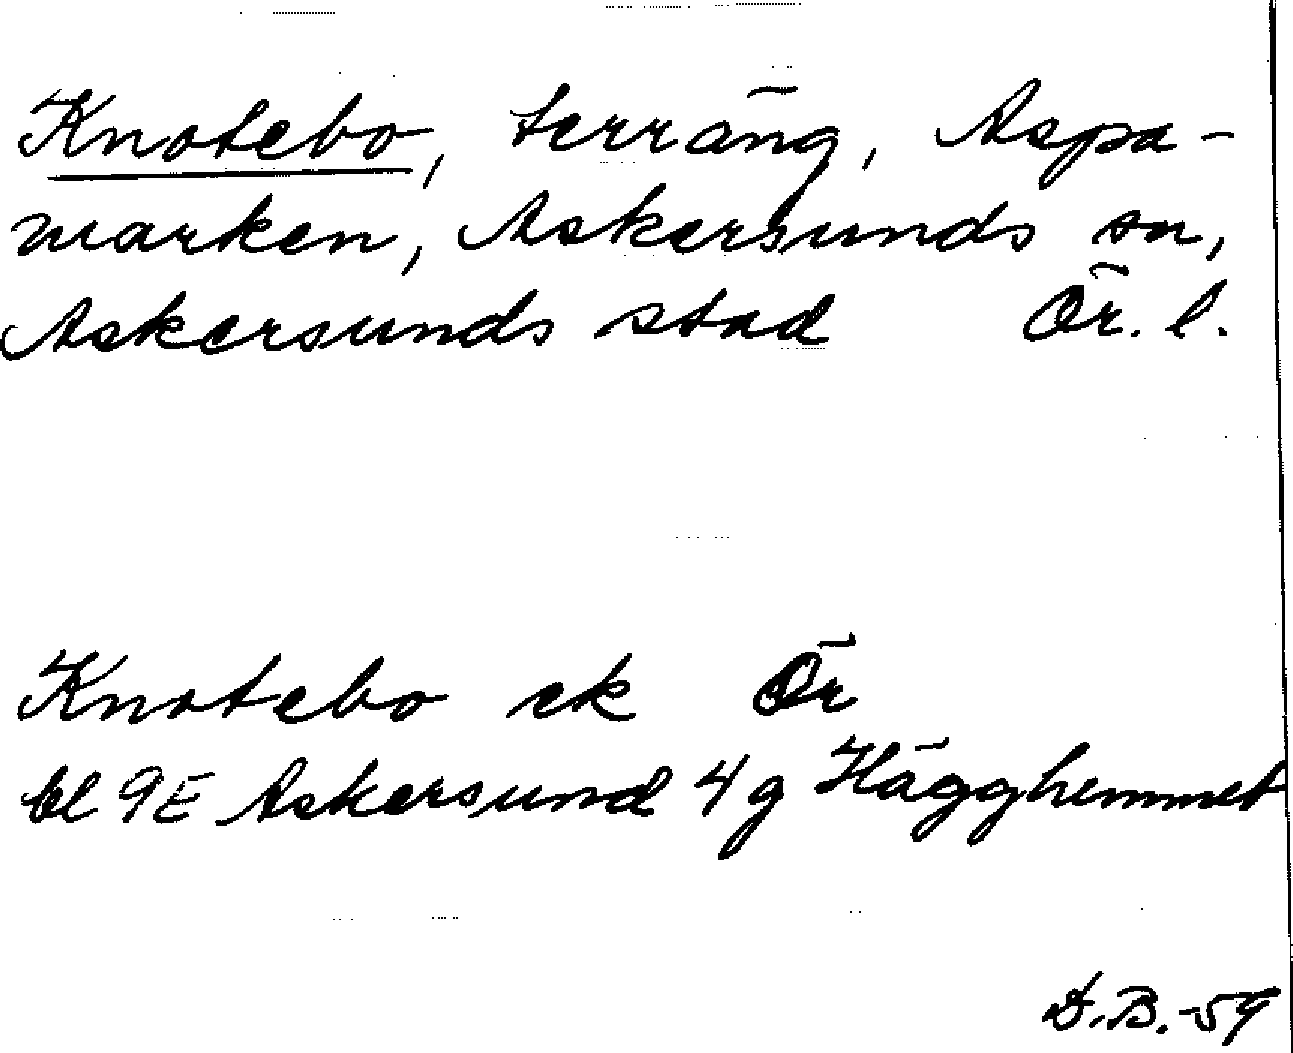 Knotebo, terräng, Aspa-
marken, Askersunds sn,
Askersunds stad Ör. l.
Knotebo ek Ör
bl 9E Askersund 4g Hägghemmet
D.B.-59